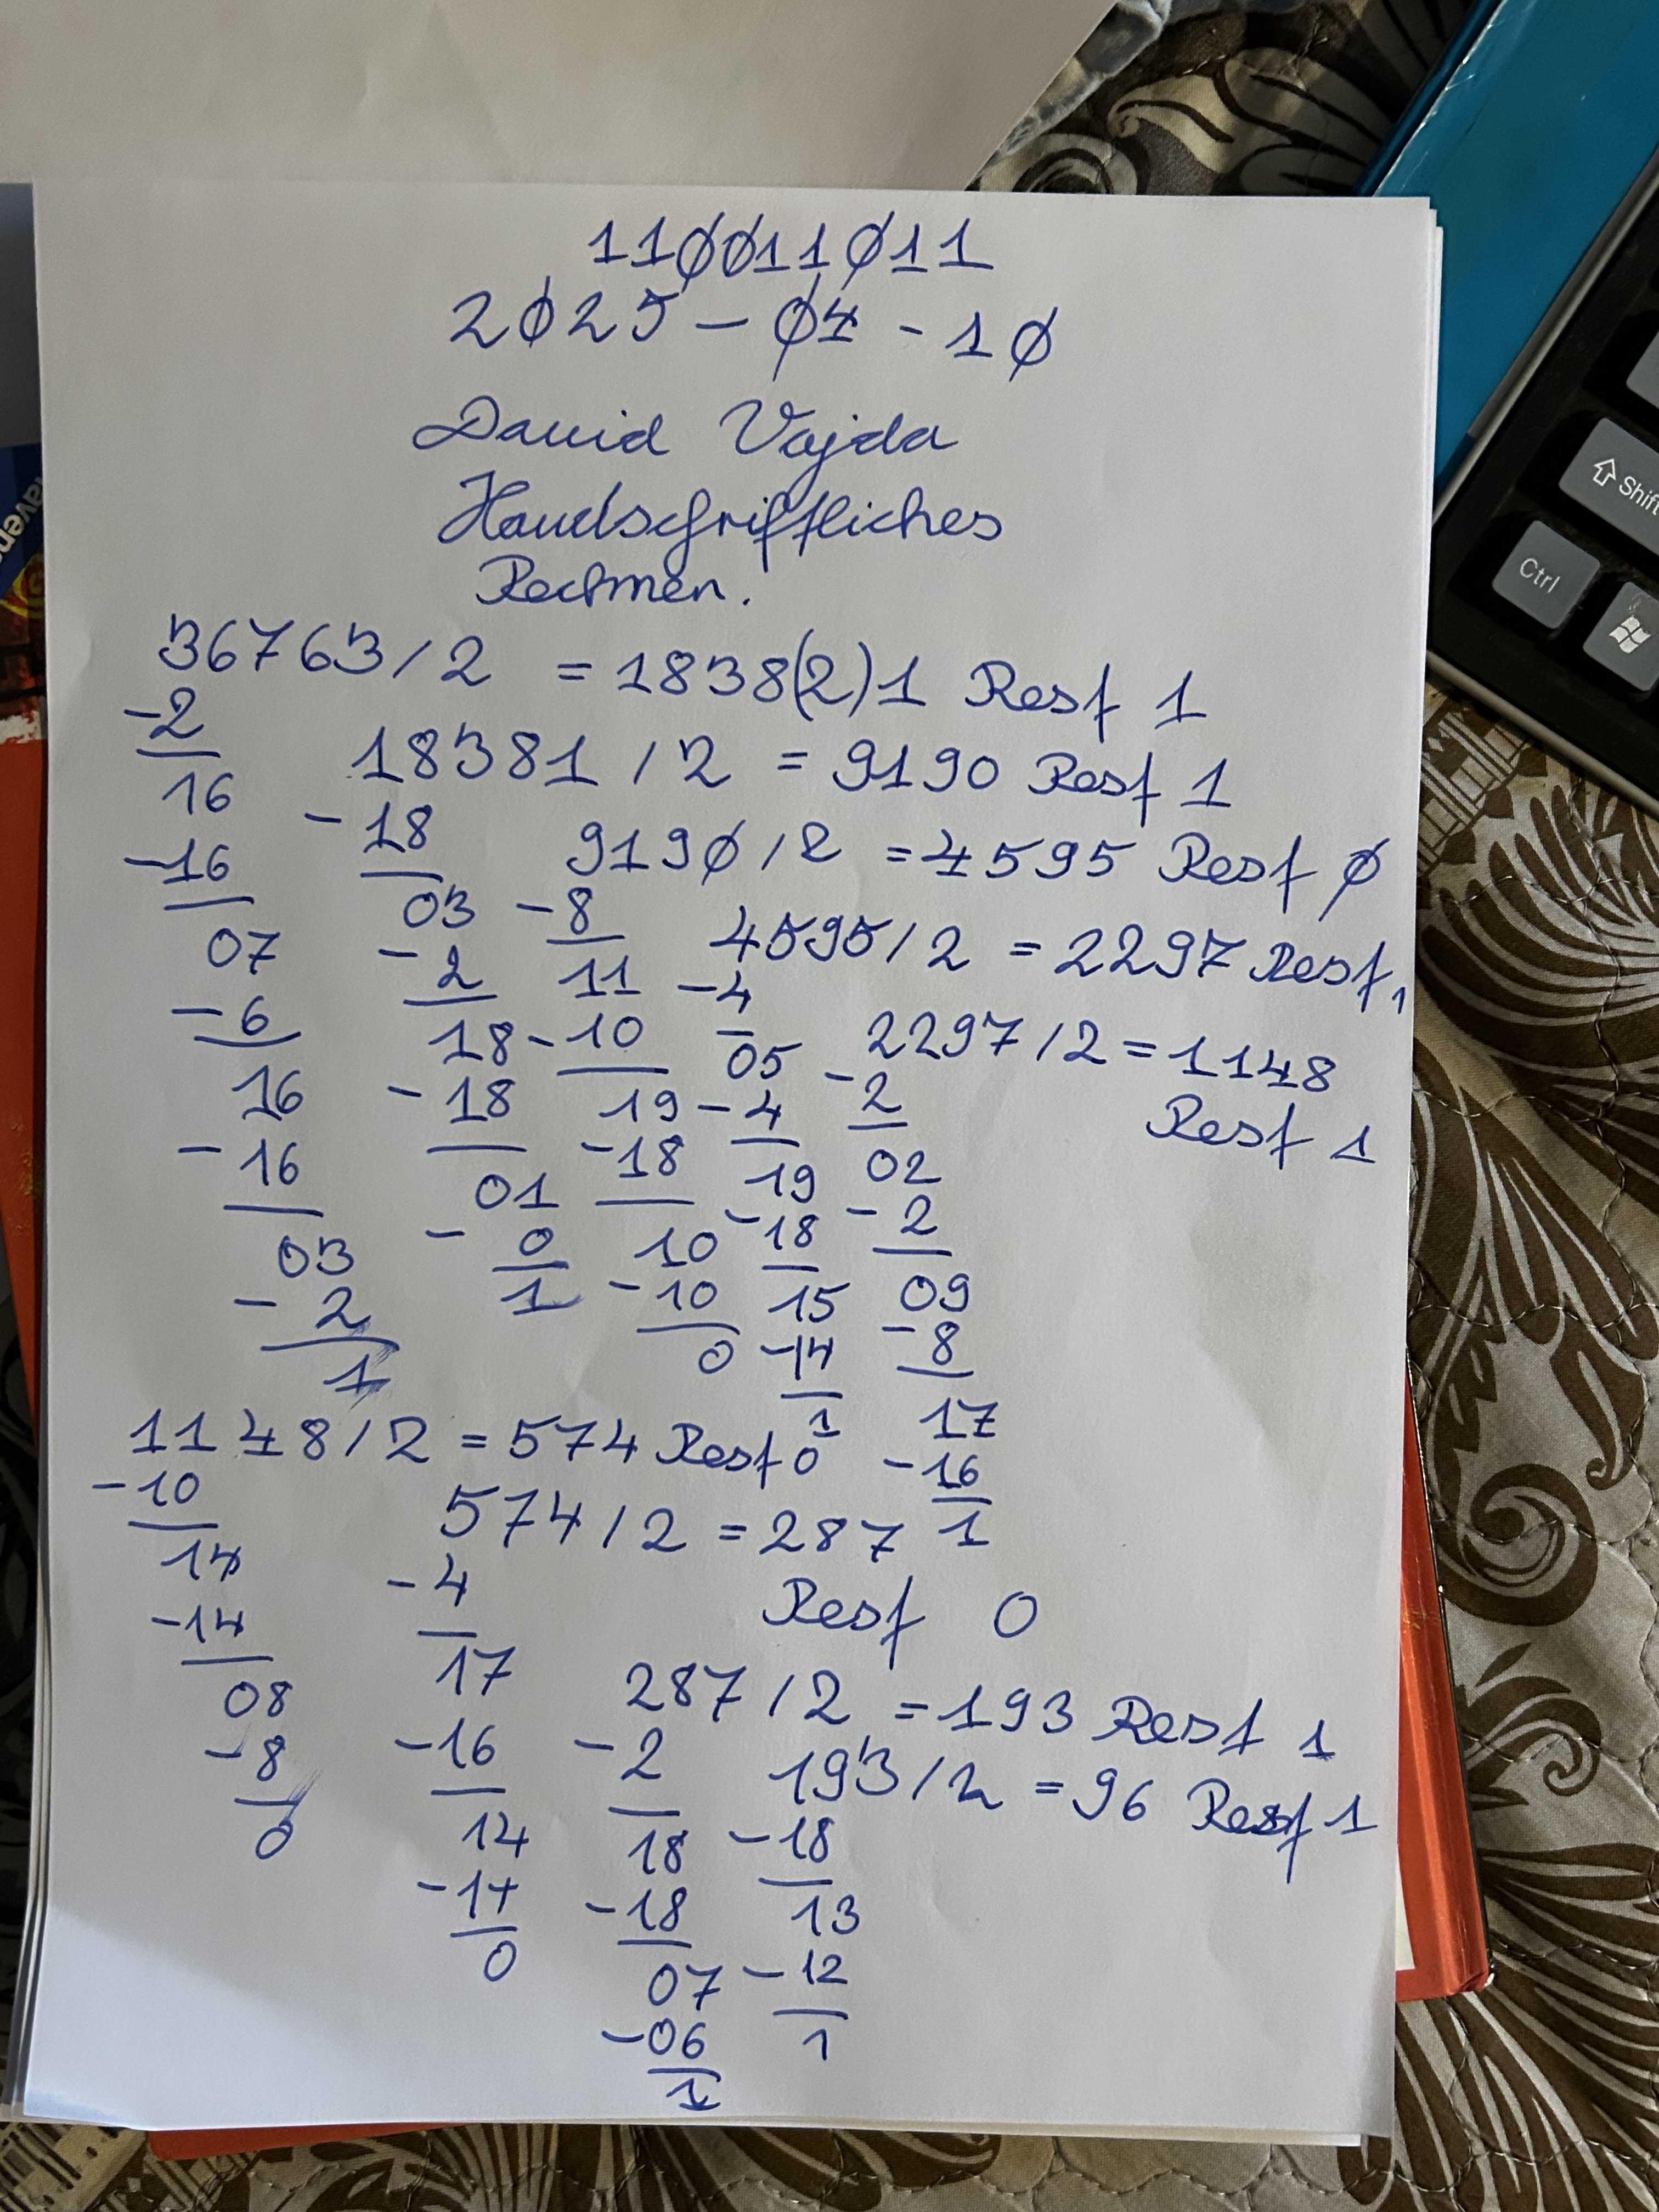 1100110 11
2025-04-10
David Vajda
Handschriftliches
Rechnen.
36763/2 = 1838(2)1 Rest 1
-2
16
-16
07
-6
16
-16
03
-2
1
18381/2 = 9190 Rest 1
-18
03
-2
18
-18
01
-0
1
9190/2 = 4595 Rest 0
-8
11
-10
19
-18
10
-10
0
4595/2 = 2297 Rest 1
-4
05
-4
19
-18
15
-14
1
2297/2 = 1148
Rest 1
-2
02
-2
09
-8
17
-16
1
1148/2 = 574 Rest 0
-10
14
-14
08
-8
0
574/2 = 287
Rest 0
-4
17
-16
14
-14
0
287/2 = 193 Rest 1
-2
18
-18
07
-06
1
193/2 = 96 Rest 1
-18
13
-12
1
Shift
Ctrl